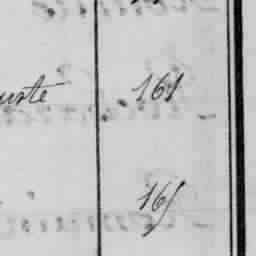 uste 161
165